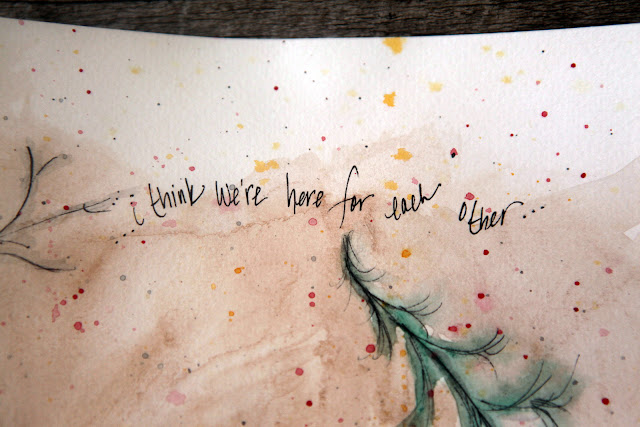 ...i think we're here for each other...